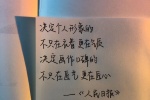 决定个人形象的
不只在衣着 更在气质
决定画作口碑的
不只在且是 更在且心
——《人民日报》